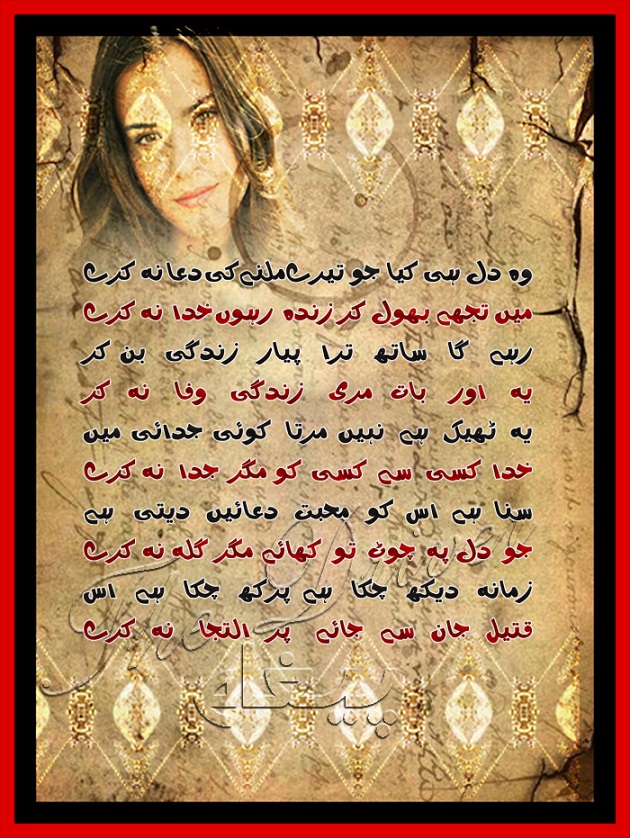 وہ دل ہی کیا جو تیرے ملنے کی دعا نہ کرے
میں تجھے بھول کر زندہ رہوں خدا نہ کرے
رہے گا ساتھ ترا پیار زندگی بن کر
یہ اور بات مری زندگی وفا نہ کر
یہ ٹھیک ہے نہیں مرتا کوئی جدائی میں
خدا کسی سے کسی کو مگر جدا نہ کرے
سنا ہے اس کو محبت دعائیں دیتی ہے
جو دل پہ چوٹ تو کھائے مگر گلہ نہ کرے
زمانہ دیکھ چکا ہے پرکھ چکا ہے اس
قتیل جان سے جائے پر التجا نہ کرے
The